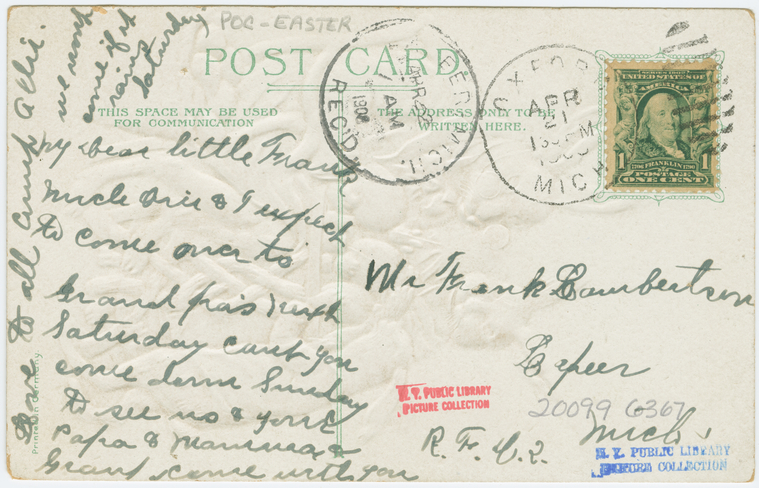 POC-EASTER
POST CARD
THIS SPACE MAY BE USED
FOR COMMUNICATION
THE ADDRESS ONLY TO BE
WRITTEN HERE.
LAPEER, MICH.
APR
1 AM
REC'D
OXFORD
APR
21
MICH
SERIES 1902
UNITED STATES OF
AMERICA
1 FRANKLIN 1
POSTAGE
ONE CENT
My dear little Frank
Uncle Orie & I expect
to come over to
Grand pa's next
Saturday cant you
come down Sunday
to see us & your
Papa & Mamma &
Grant come with you
Love to all aunt Allie.
we wont
come if it
rains
Saturday
Mr Frank Lambertson
Lapeer
Mich.
R. F. D. 2.
N. Y. PUBLIC LIBRARY
PICTURE COLLECTION
20099 6367
N. Y. PUBLIC LIBRARY
PICTURE COLLECTION
Printed in Germany.